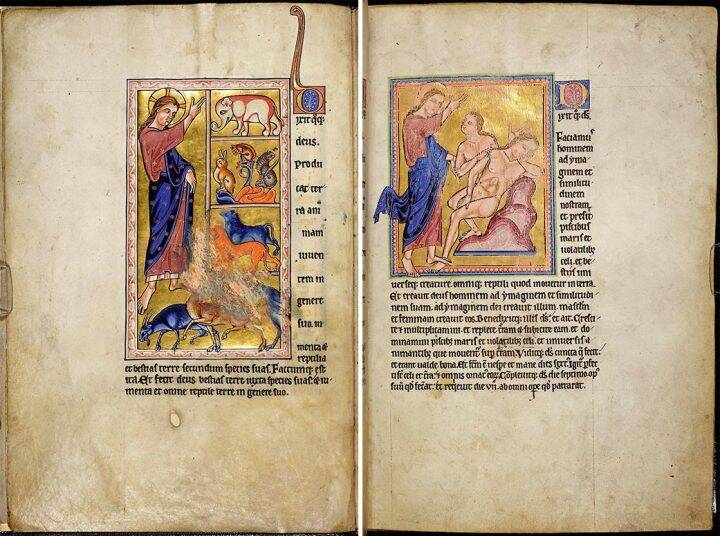 Dixit q̄q;
deus.
Produ
cat ter
ra ani
mam
viuen
tem in
genere
suo. iu
menta &
reptilia
et bestias terre secundum species suas. Factumq; est
ita. Et fecit deus bestias terre iuxta species suas. & iu
menta et omne reptile terre in genere suo.
Dixit q̄; ds̄.
Faciam᷒
hominem
ad ymagi
nem et
similitu
dinem
nostram.
et presit
piscibus
maris et
uolatilib;
celi. et be
stiis uni
uerseq; creature. omniq; reptili quod mouetur in terra.
Et creauit deus hominem ad ymaginem et similitudi
nem suam. ad ymaginem dei creauit illum. masclm̄
et feminam creauit eos. Benedixitq; illis ds̄. et ait. Cresci
te & multiplicamini. et replete terram & subicite eam. et do
minamini piscib; maris et uolatilib; celi. et uniuersis a
nimantib; que mouent̄ sup terram. Viditq; ds̄ cuncta q̄ fecit.
et erant ualde bona. Et factum ē uespe et mane dies sext̄. Igit̄ pfec
ti st̄ celi et terra. & omnis ornat᷒ eoꝝ. Cōpleuitq; ds̄ die septimo op᷒
suū qd̄ fecat. et requieuit die vii. ab omni ope qd̄ patrarat.